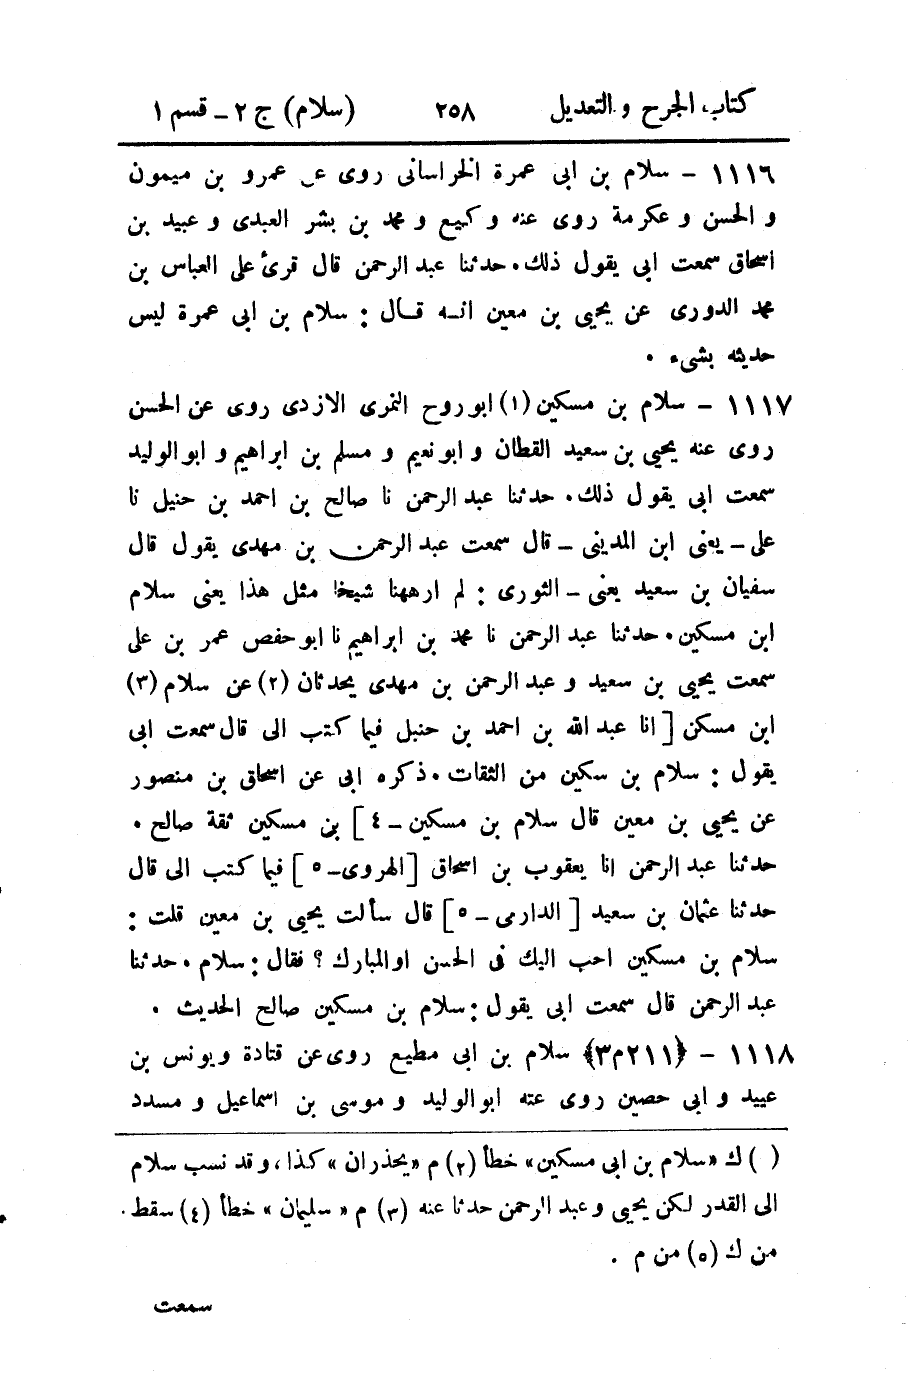 كتاب الجرح والتعديل ٢٥٨ (سلام) ج ٢ - قسم ١
١١١٦ - سلام بن ابى عمرة الخراسانى روى عن عمرو بن ميمون
و الحسن و عكرمة روى عنه وكيع و محمد بن بشر العبدى و عبيد بن
اسحاق سمعت ابى يقول ذلك. حدثنا عبد الرحمن قال قرئ على العباس بن
محمد الدورى عن يحيى بن معين انه قال : سلام بن ابى عمرة ليس
حديثه بشىء .
١١١٧ - سلام بن مسكين (١) ابو روح النمرى الازدى روى عن الحسن
روى عنه يحيى بن سعيد القطان و ابو نعيم و مسلم بن ابراهيم و ابو الوليد
سمعت ابى يقول ذلك. حدثنا عبد الرحمن نا صالح بن احمد بن حنبل نا
على - يعنى ابن المدينى - قال سمعت عبد الرحمن بن مهدى يقول قال
سفيان بن سعيد يعنى - الثورى : لم ار ههنا شيخا مثل هذا يعنى سلام
ابن مسكين. حدثنا عبد الرحمن نا محمد بن ابراهيم نا ابو حفص عمر بن على
سمعت يحيى بن سعيد و عبد الرحمن بن مهدى يحدثان (٢) عن سلام (٣)
ابن مسكن [ انا عبد الله بن احمد بن حنبل فيما كتب الى قال سمعت ابى
يقول : سلام بن سكين من الثقات. ذكره ابى عن اسحاق بن منصور
عن يحيى بن معين قال سلام بن مسكين - ٤ ] بن مسكين ثقة صالح .
حدثنا عبد الرحمن انا يعقوب بن اسحاق [الهروى - ٥ ] فيما كتب الى قال
حدثنا عثمان بن سعيد [ الدارمى - ٥ ] قال سألت يحيى بن معين قلت :
سلام بن مسكين احب اليك فى الحسن او المبارك ؟ فقال : سلام . حدثنا
عبد الرحمن قال سمعت ابى يقول : سلام بن مسكين صالح الحديث .
١١١٨ - ﴿٢١١م٣﴾ سلام بن ابى مطيع روى عن قتادة ويونس بن
عبيد و ابى حصين روى عنه ابو الوليد و موسى بن اسماعيل و مسدد
( ) ك «سلام بن ابى مسكين» خطأ (٢) م «يحذران» كذا، وقد نسب سلام
الى القدر لكن يحيى وعبد الرحمن حدثا عنه (٣) م «سليمان» خطأ (٤) سقط
من ك (٥) من م .
سمعت